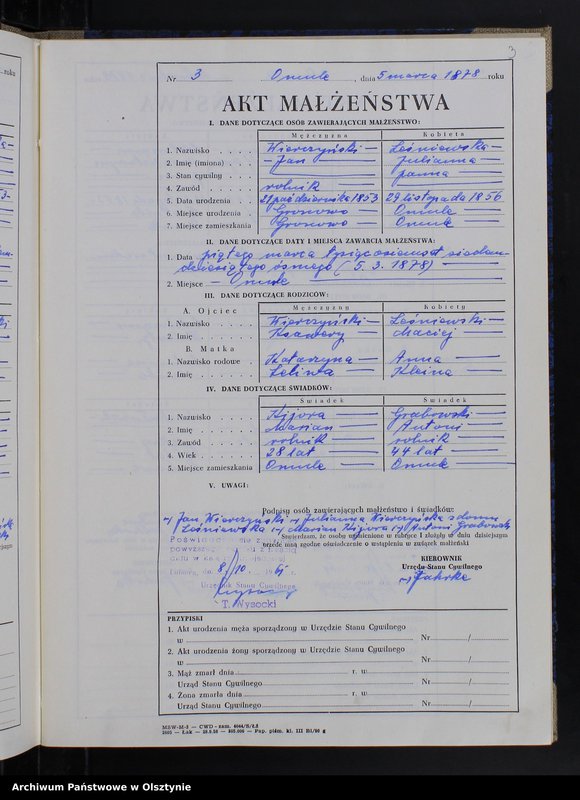 3
Nr 3 Omule, dnia 5 marca 1878 roku
AKT MAŁŻEŃSTWA
I. DANE DOTYCZĄCE OSÓB ZAWIERAJĄCYCH MAŁŻEŃSTWO:
Mężczyzna Kobieta
1. Nazwisko Wierczyński Leśniewska
2. Imię (imiona) Jan Julianna
3. Stan cywilny panna
4. Zawód rolnik
5. Data urodzenia 21 października 1853 29 listopada 1856
6. Miejsce urodzenia Gronowo Omule
7. Miejsce zamieszkania Gronowo Omule
II. DANE DOTYCZĄCE DATY I MIEJSCA ZAWARCIA MAŁŻEŃSTWA:
1. Data piątego marca tysiąc osiemset siedem-
dziesiątego ósmego (5.3.1878)
2. Miejsce Omule
III. DANE DOTYCZĄCE RODZICÓW:
Mężczyzny Kobiety
A. Ojciec
1. Nazwisko Wierczyński Leśniewski
2. Imię Ksawery Maciej
B. Matka
1. Nazwisko rodowe Katarzyna Anna
2. Imię Kleina
IV. DANE DOTYCZĄCE ŚWIADKÓW:
Świadek Świadek
1. Nazwisko Grabowski
2. Imię Marian Antoni
3. Zawód rolnik rolnik
4. Wiek 28 lat 44 lat
5. Miejsce zamieszkania Omule Omule
V. UWAGI:
Podpisy osób zawierających małżeństwo i świadków:
Jan Wierczyński Julianna Wierczyńska z domu
Leśniewska Marian Antoni Grabowski
Stwierdzam, że osoby wymienione w rubryce I złożyły w dniu dzisiejszym
przede mną zgodne oświadczenie o wstąpieniu w związek małżeński
KIEROWNIK
Urzędu Stanu Cywilnego
8/10
Urzędnik Stanu Cywilnego
T. Wysocki
PRZYPISKI
1. Akt urodzenia męża sporządzony w Urzędzie Stanu Cywilnego
w Nr /
2. Akt urodzenia żony sporządzony w Urzędzie Stanu Cywilnego
w Nr /
3. Mąż zmarł dnia r. w
Urząd Stanu Cywilnego Nr /
4. Żona zmarła dnia r. w
Urząd Stanu Cywilnego Nr /
Archiwum Państwowe w Olsztynie